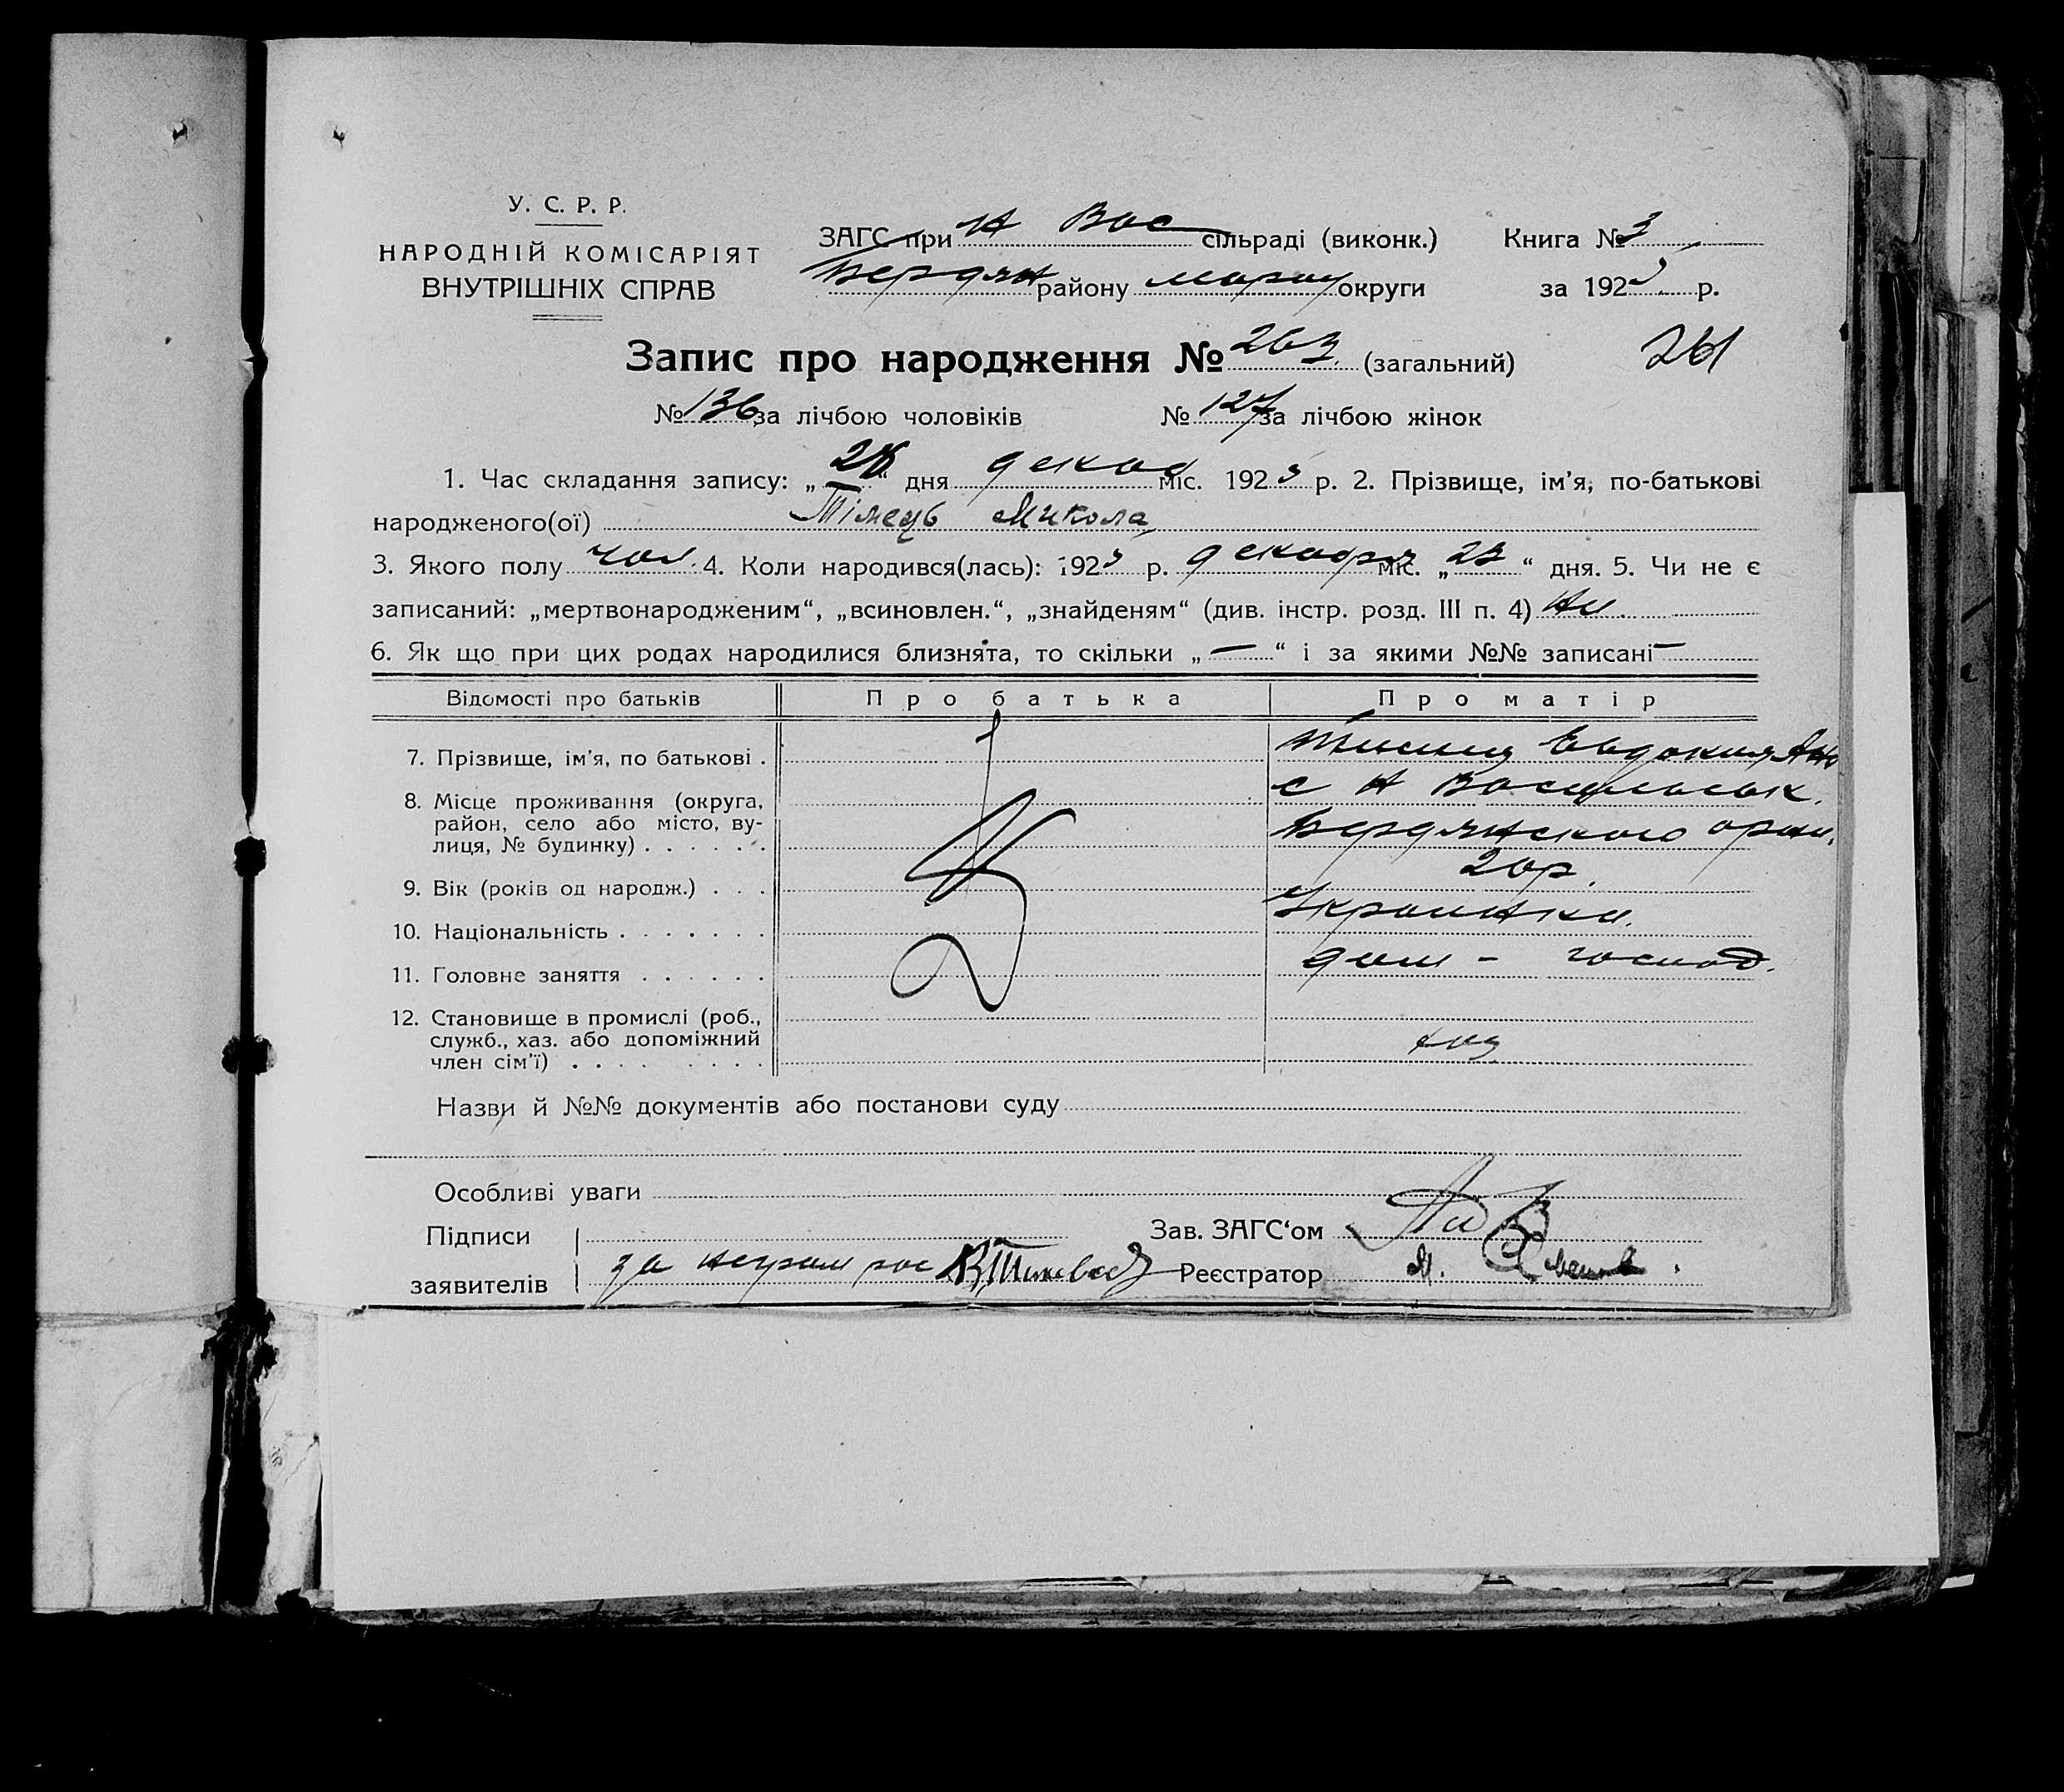 У. С. Р. Р.
НАРОДНІЙ КОМІСАРІЯТ
ВНУТРІШНІХ СПРАВ
ЗАГС при Н Вас сільраді (виконк.) Книга № 3
Бердян району Мариу округи за 192 р.
Запис про народження № 263 (загальний) 261
№ 136 за лічбою чоловіків № 127 за лічбою жінок
1. Час складання запису: „ “ дня декаб міс. 192 р. 2. Прізвище, ім'я, по-батькові
народженого(ої) Тімець Микола
3. Якого полу чол. 4. Коли народився(лась): 192 р. декабря міс. „23“ дня. 5. Чи не є
записаний: „мертвонародженим“, „всиновлен.“, „знайденям“ (див. інстр. розд. III п. 4) Ни
6. Як що при цих родах народилися близнята, то скільки „—“ і за якими №№ записані —
Відомості про батьків Про батька Про матір
7. Прізвище, ім'я, по батькові . Евдокия
8. Місце проживання (округа, с Н Васильевк.
район, село або місто, ву- Бердянского
лиця, № будинку) . . . . . .
9. Вік (років од народж.) . . . 20р.
10. Національність . . . . . . . Украинка.
11. Головне заняття . . . . . . дом - господ.
12. Становище в промислі (роб.,
служб., хаз. або допоміжний хоз
член сім'ї) . . . . . . . .
Назви й №№ документів або постанови суду
Особливі уваги
Підписи Зав. ЗАГС‘ом
заявителів за неграм рос Реєстратор